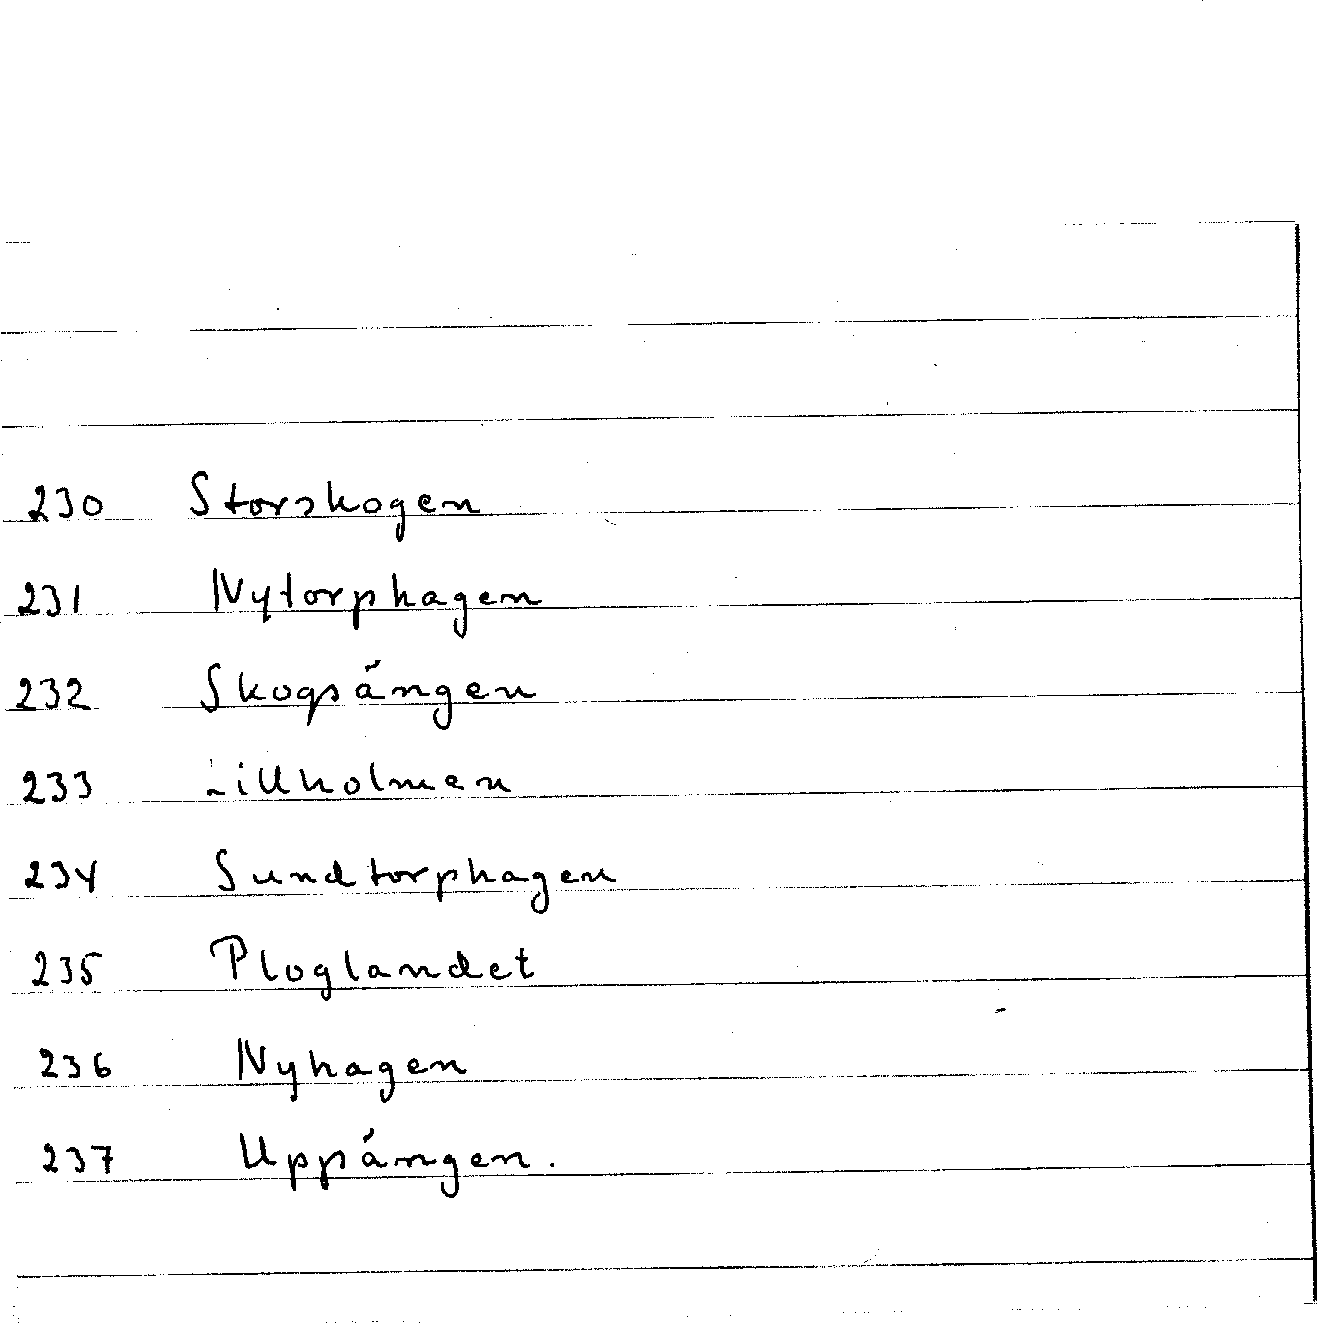 230 Storskogen
231 Nytorphagen
232 Skogsängen
233 Lillholmen
234 Sundtorphagen
235 Ploglandet
236 Nyhagen
237 Uppängen.